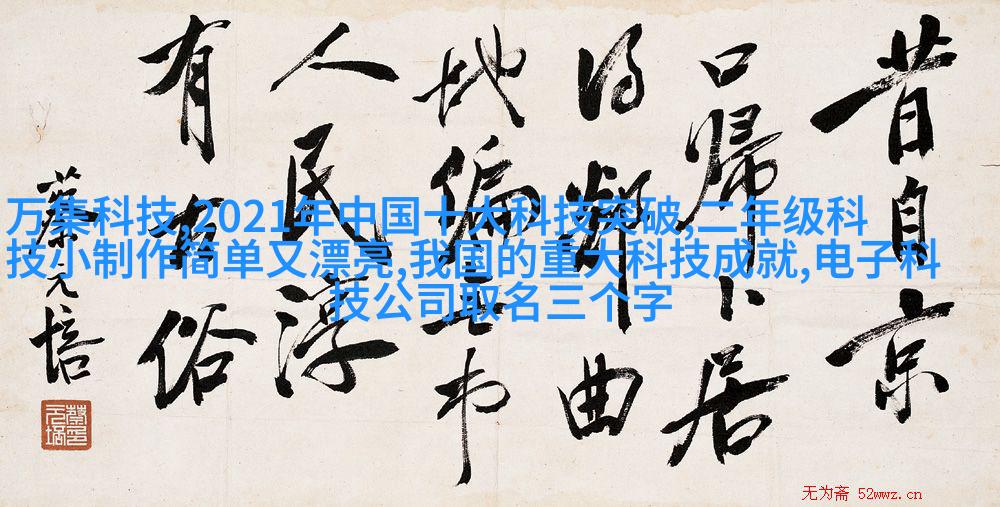 昔自京
口歸卜居
得鄰曲
地偏
人民淳
有古俗
蔡元培
万集科技,2021年中国十大科技突破,二年级科
技小制作简单又漂亮,我国的重大科技成就,电子科
技公司取名三个字
无为斋 52wwz.cn